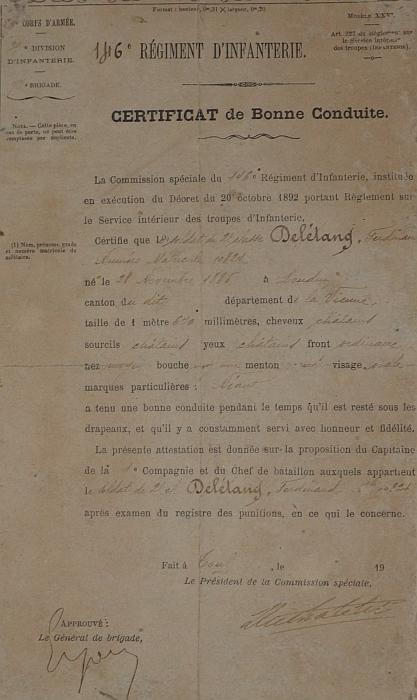 Format : hauteur, 0m,31 × largeur, 0m,21
CORPS D'ARMÉE.
DIVISION
D'INFANTERIE.
BRIGADE.
Modèle XXV
Art. 322 du Règlement sur
le Service intérieur
des troupes (INFANTERIE)
146e RÉGIMENT D'INFANTERIE.
CERTIFICAT de Bonne Conduite.
NOTA. — Cette pièce, en
cas de perte, ne peut être
remplacée par duplicata.
La Commission spéciale du 146e Régiment d'Infanterie, instituée
en exécution du Décret du 20 octobre 1892 portant Règlement sur
le Service intérieur des troupes d'Infanterie,
(1) Nom, prénoms, grade
et numéro matricule du
militaire.
Certifie que le soldat de 2e classe Delétang, Ferdinand
Numéro Matricule
né le 28 Novembre 1886 à Loudun
canton du dit département de la Vienne,
taille de 1 mètre millimètres, cheveux châtains
sourcils châtains yeux châtains front ordinaire
nez bouche menton visage ovale
marques particulières : Néant
a tenu une bonne conduite pendant le temps qu'il est resté sous les
drapeaux, et qu'il y a constamment servi avec honneur et fidélité.
La présente attestation est donnée sur la proposition du Capitaine
de la Compagnie et du Chef de bataillon auxquels appartient
le soldat de 2e cl. Delétang, Ferdinand
après examen du registre des punitions, en ce qui le concerne.
Fait à Toul, le 19
Le Président de la Commission spéciale,
APPROUVÉ :
Le Général de brigade,